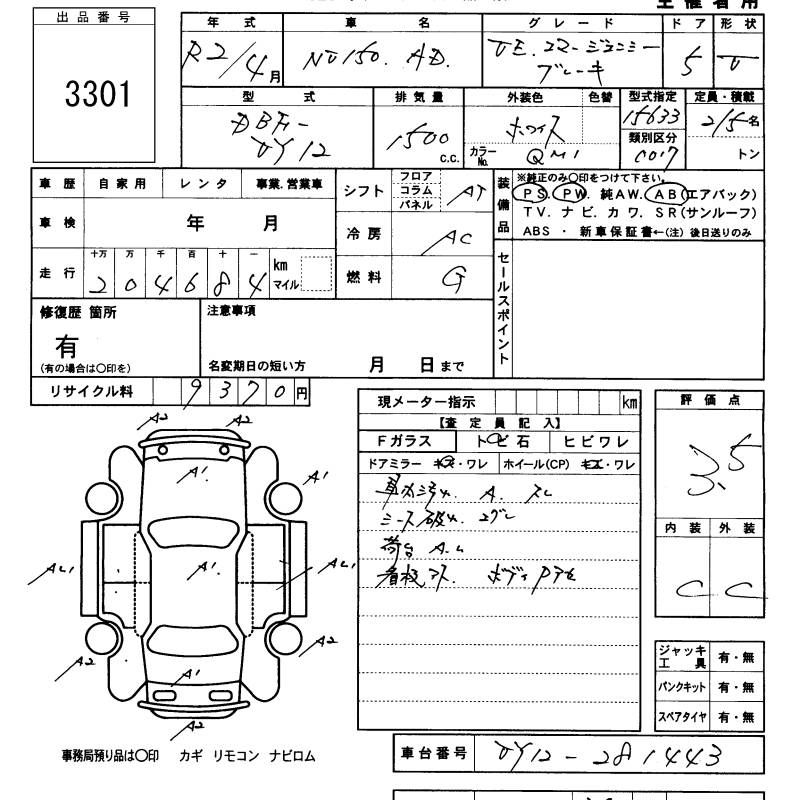 出品番号
3301
年式 車名 グレード ドア 形状
R2/4月 NV150. AD. VE.エマージェンシーブレーキ 5 V
型式 排気量 外装色 色替 型式指定 定員・積載
DBF-VY12 1500 C.C. ホワイト 15633 2/5名
カラーNo. QM1 類別区分 0017 トン
車歴 自家用 レンタ 事業.営業車
車検 年 月
走行 十万 万 千 百 十 一
2 0 4 6 8 4 km マイル
シフト フロア コラム パネル AT
冷房 AC
燃料 G
装備品 ※純正のみ○印をつけて下さい。
PS. PW. 純AW. AB(エアバック)
TV. ナビ. カワ. SR(サンルーフ)
ABS ・ 新車保証書←(注) 後日送りのみ
セールスポイント
修復歴 箇所
有
(有の場合は○印を)
注意事項
名変期日の短い方 月 日まで
リサイクル料 9370円
現メーター指示 km
【査定員記入】
Fガラス トビ石 ヒビワレ
ドアミラー キズ・ワレ ホイール(CP) キズ・ワレ
A.
シート
荷台 A.
看板 ボディ
評価点
3.5
内装 外装
C C
A2 A2
A1 A1
A1
A2 A2
A1
A2
ジャッキ工具 有・無
パンクキット 有・無
スペアタイヤ 有・無
事務局預り品は○印 カギ リモコン ナビロム
車台番号 VY12-281443